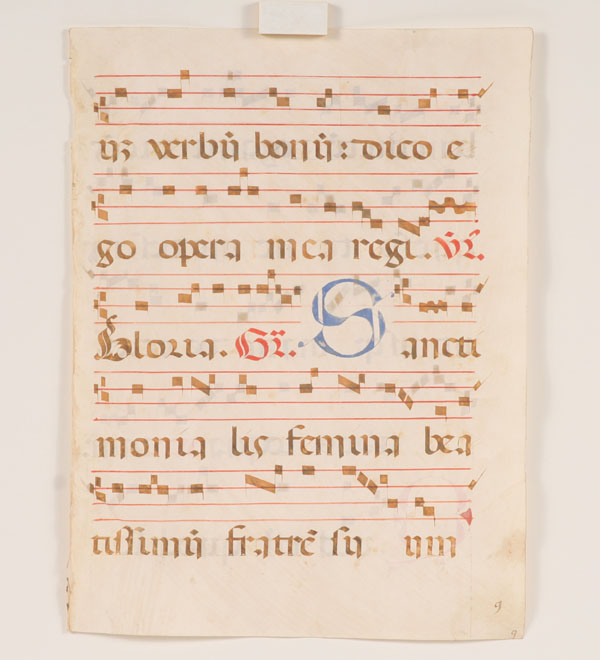 uȝ verbū bonū : dico e
go opera mea regi. Vr̃.
Gloria. Gr̃. Sancti
monia lis femina bea
tissimū fratrē su um
9
9